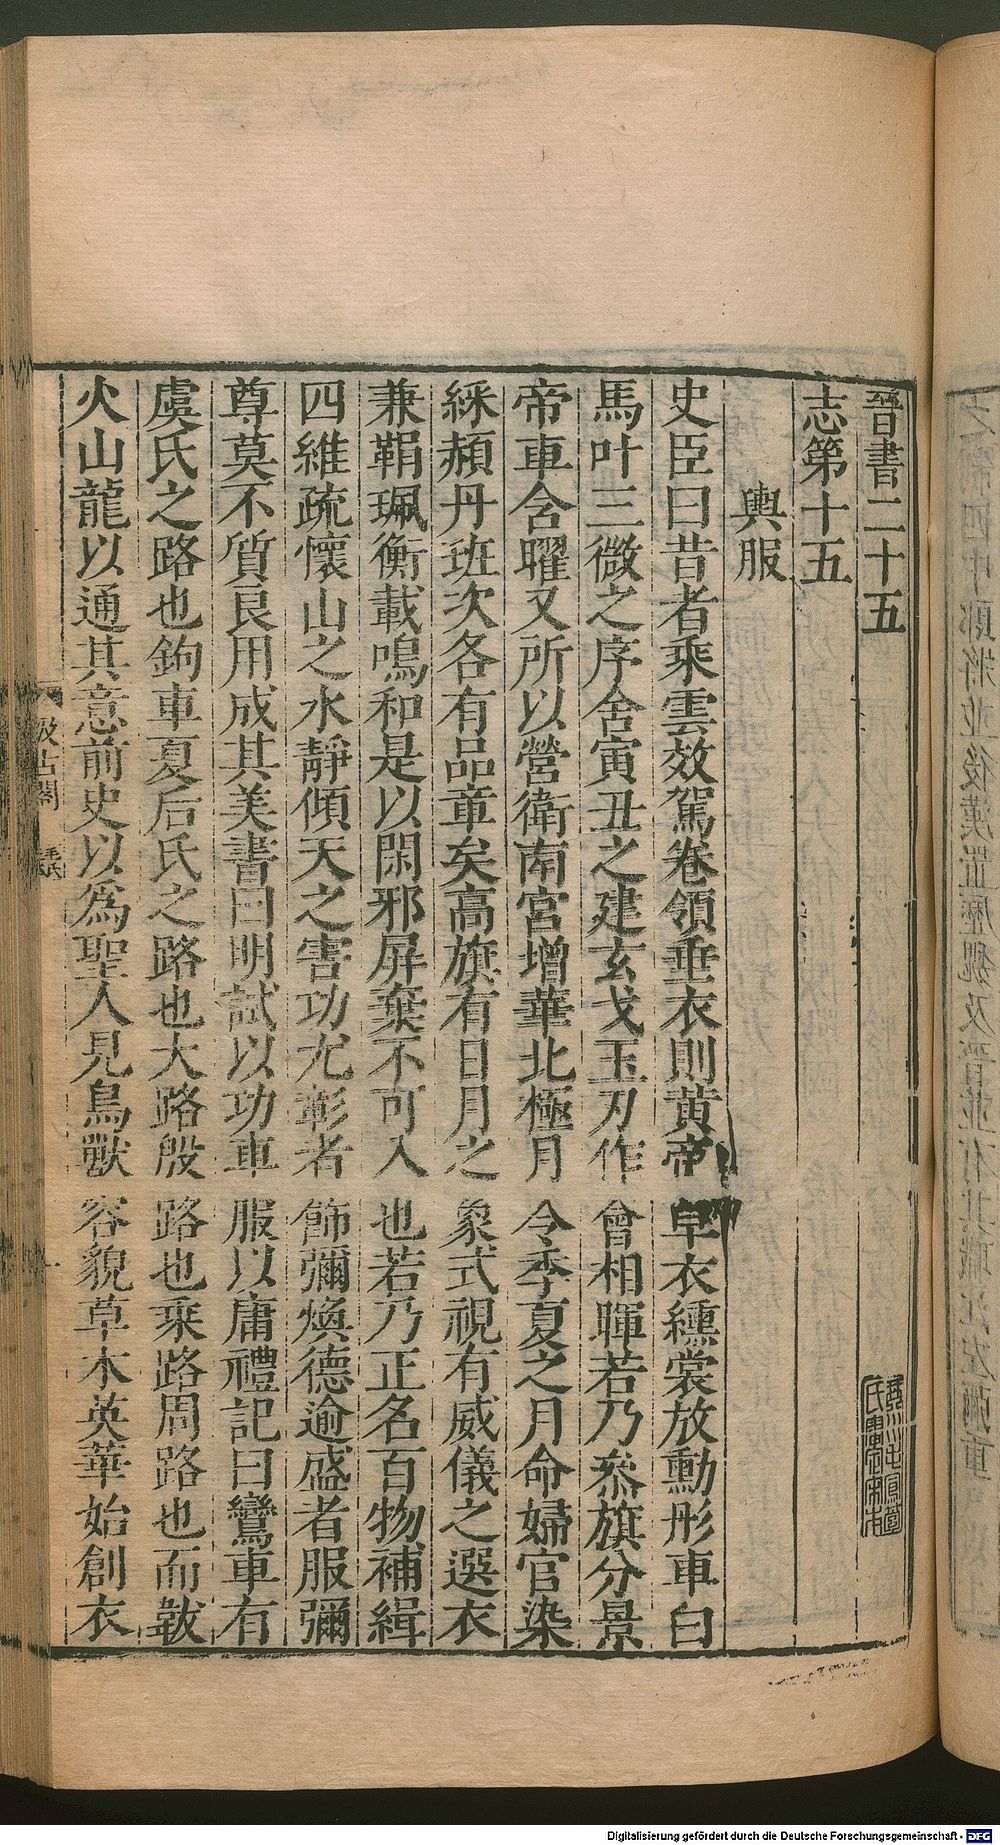 晉書二十五
志第十五
輿服
史臣曰昔者乘雲效駕卷領垂衣則黃帝皁衣纁裳放勳彤車白
馬叶三微之序舍寅丑之建玄戈玉刃作會相暉若乃參旗分景
帝車含曜又所以營衛南宮增華北極月令季夏之月命婦官染
綵頳丹班次各有品章矣高旗有日月之象式視有威儀之選衣
兼鞙珮衡載鳴和是以閑邪屏棄不可入也若乃正名百物補緝
四維疏懷山之水靜傾天之害功尤彰者飾彌煥德逾盛者服彌
尊莫不質良用成其美書曰明試以功車服以庸禮記曰鸞車有
虞氏之路也鉤車夏后氏之路也大路殷路也乘路周路也而韍
火山龍以通其意前史以爲聖人見鳥獸容貌草木英華始創衣
汲古閣
毛氏
Digitalisierung gefördert durch die Deutsche Forschungsgemeinschaft - DFG